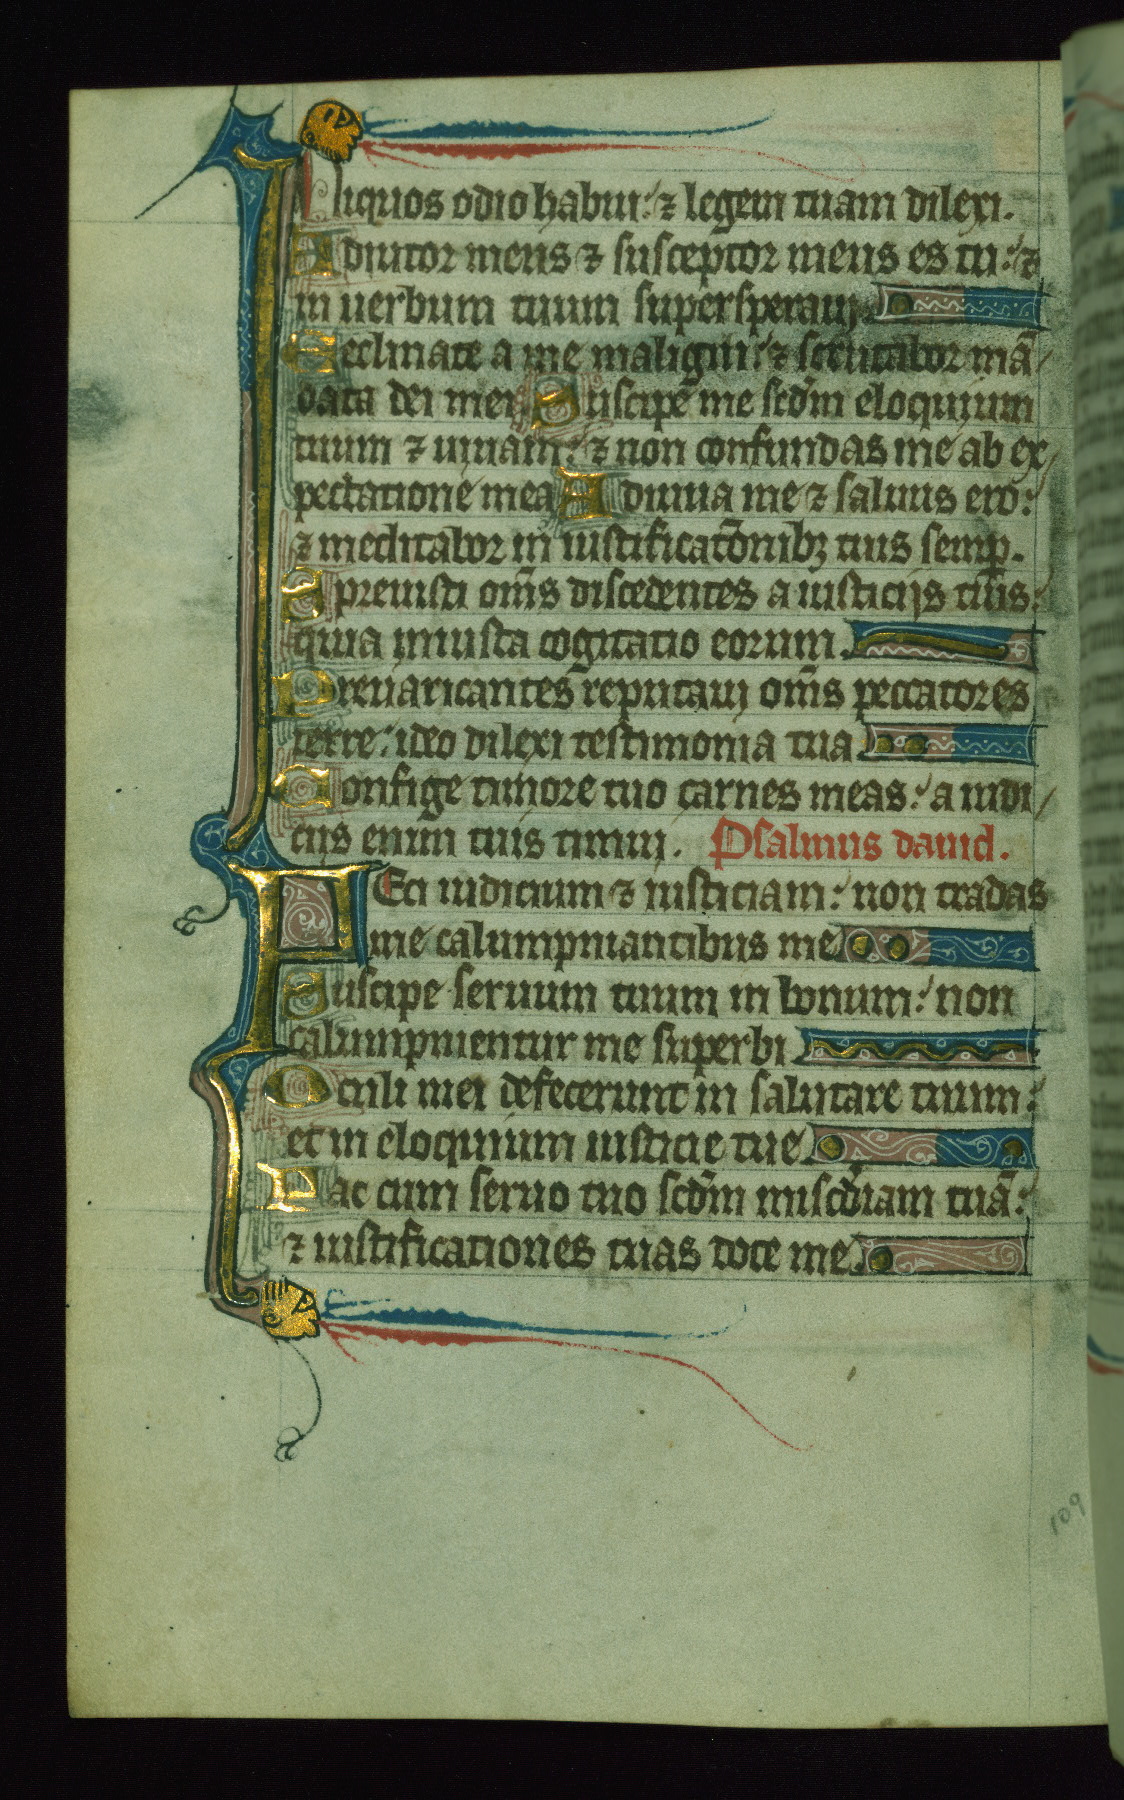 liquos odio habui: ⁊ legem tuam dilexi.
Adiutor meus ⁊ susceptor meus es tu: ⁊
in uerbum tuum supersperaui
Declinate a me maligni: ⁊ scrutabor mā
data dei mei Suscipe me scdm̄ eloquium
tuum ⁊ uiuam: ⁊ non confundas me ab ex
pectatione mea Adiuua me ⁊ saluus ero:
⁊ meditabor in iustificatōnibꝫ tuis semꝑ.
Spreuisti om̄s discedentes a iusticijs tuis:
quia iniusta cogitatio eorum.
Preuaricantes reputaui om̄s peccatores
terre: ideo dilexi testimonia tua
Confige timore tuo carnes meas: a iudi
cijs enim tuis timui. Psalmus dauid.
FEci iudicium ⁊ iusticiam: non tradas
me calumpniantibus me
Suscipe seruum tuum in bonum: non
calumpnientur me superbi
Oculi mei defecerunt in salutare tuum:
et in eloquium iusticie tue
Fac cum seruo tuo scdm̄ miscd̄iam tuā:
⁊ iustificationes tuas doce me.
109